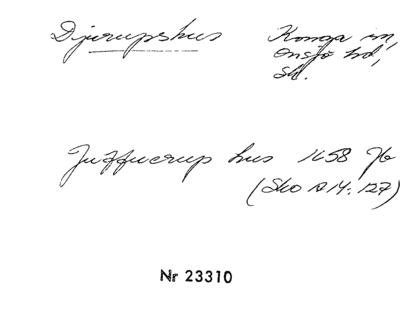 Djurupshus
Konga sn,
Onsjö hd,
Sk.
Juffuerup hus 1658 Jb
(Sko A 14: 127)
Nr 23310